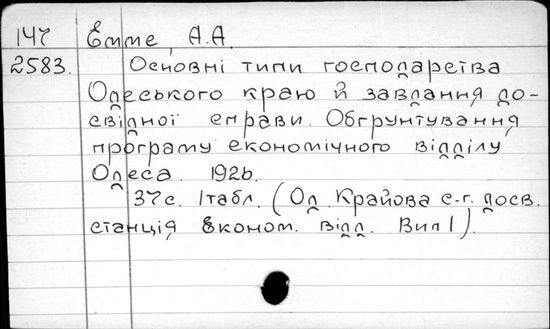 147 Емме, А.А.
2583. Основні типи господарства
Одеського краю й завдання до-
свідної справи. Обгрунтування
програму економічного відділу
Одеса. 1926.
37с. 1табл. (Од. Крайова с.-г. досв.
станція Економ. відд. Вип 1).